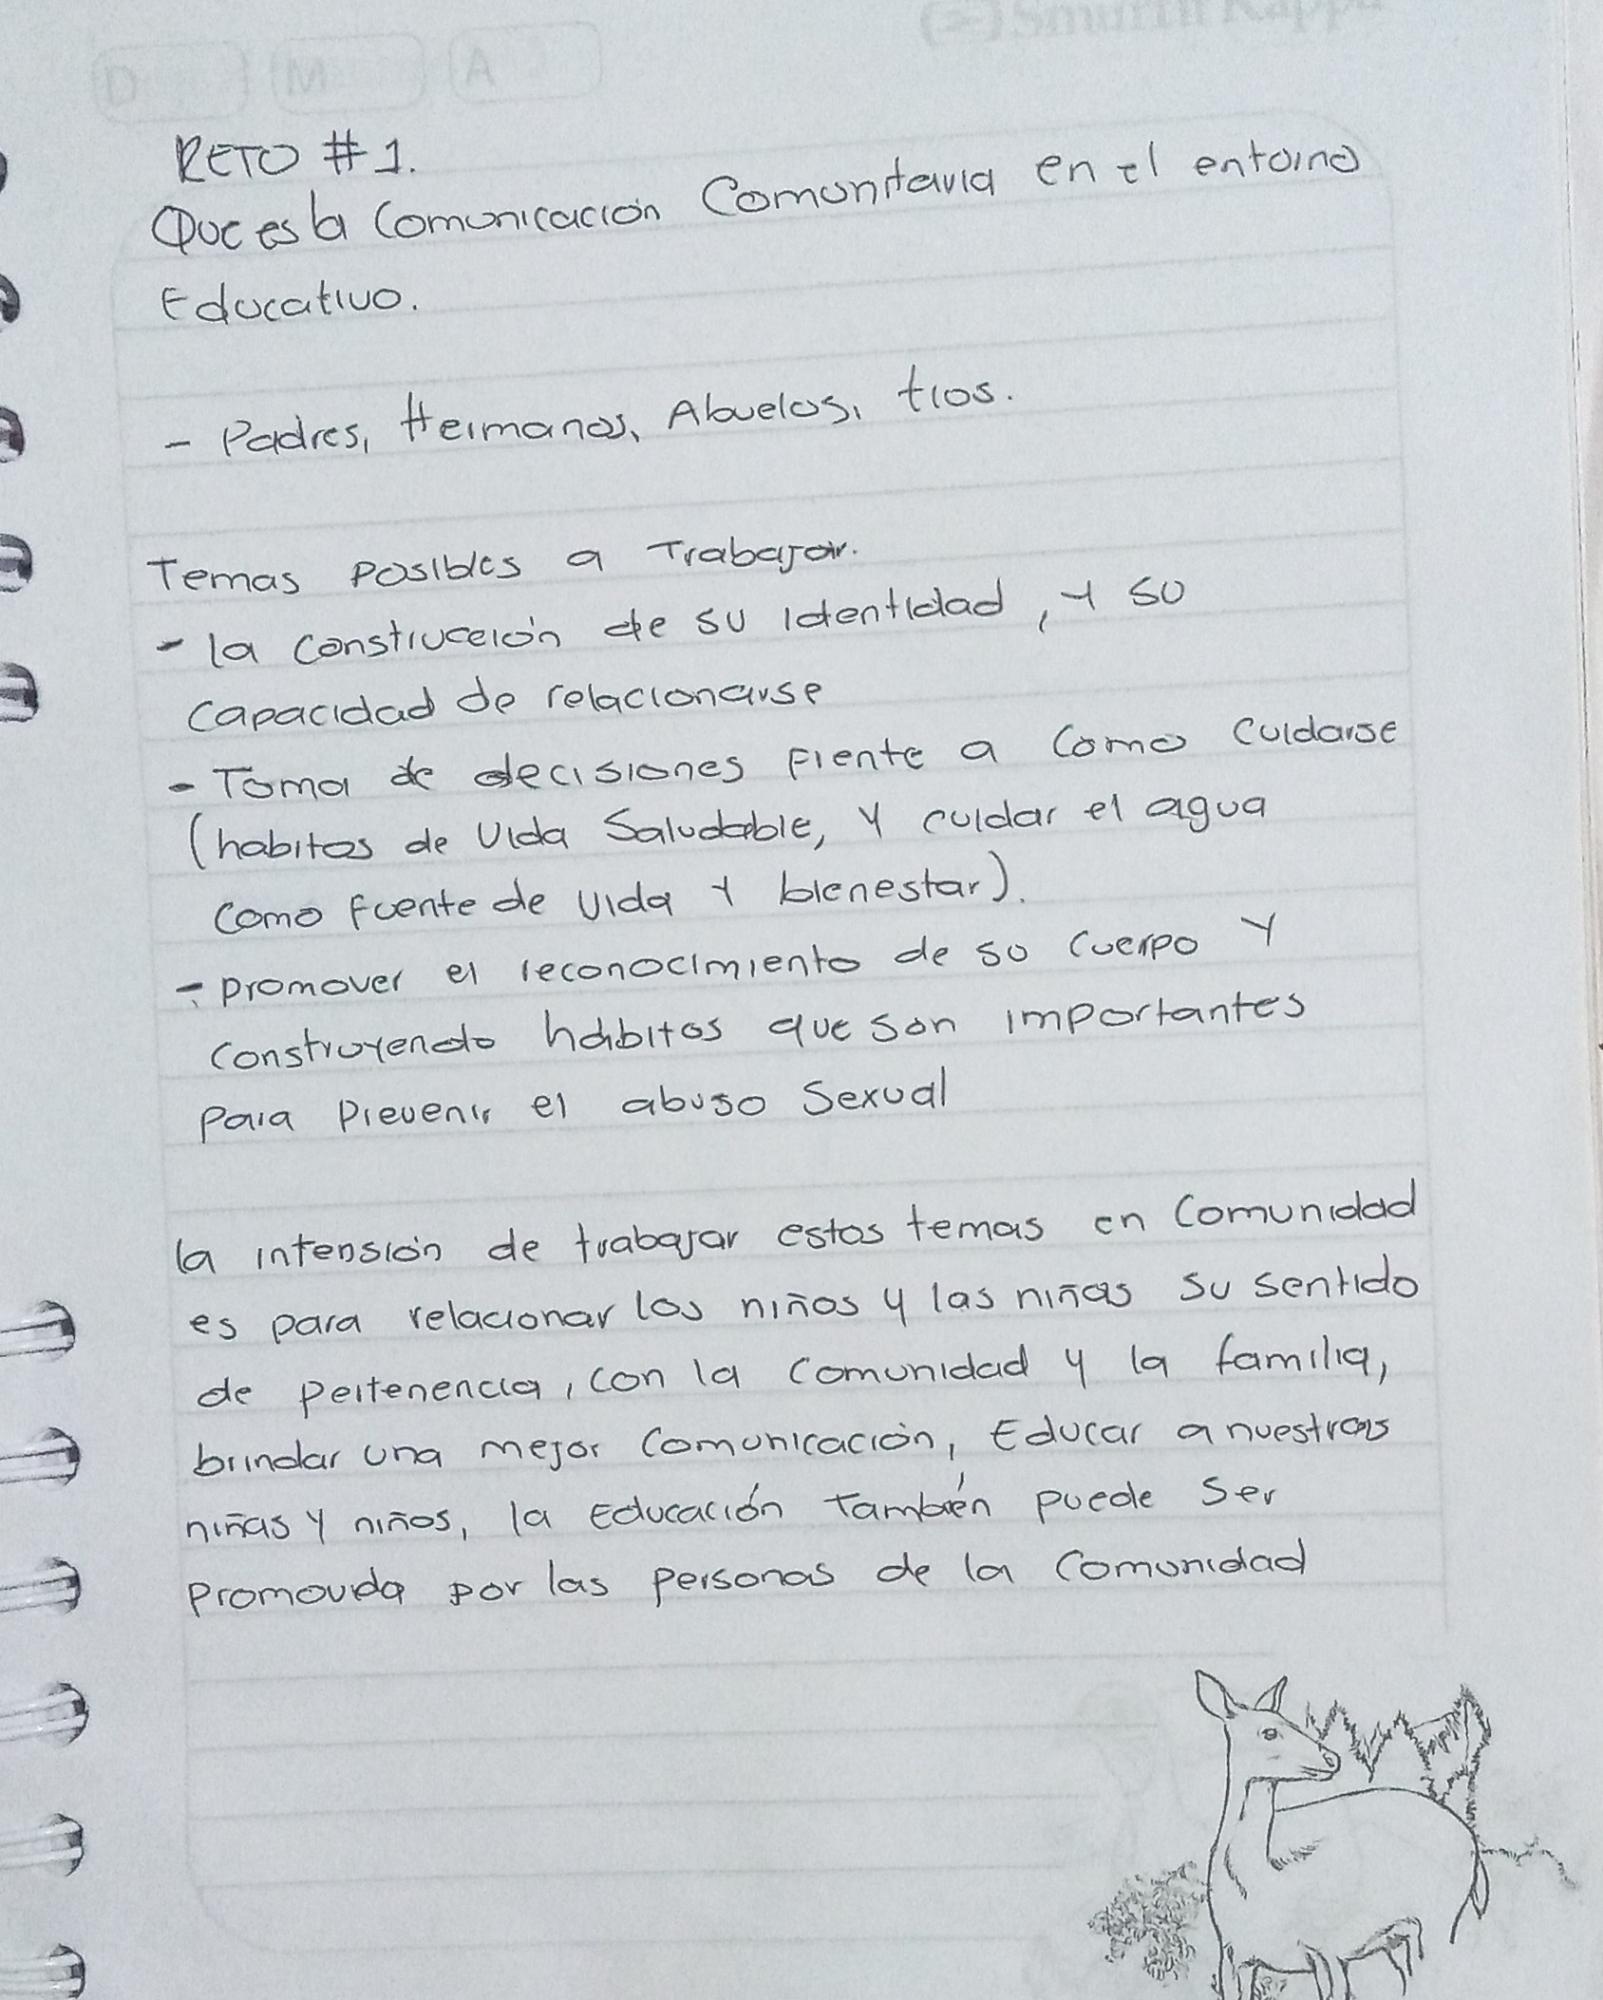 D M A
RETO #1.
Que es la Comunicación Comunitaria en el entorno
Educativo.
- Padres, Hermanos, Abuelos, tios.
Temas posibles a Trabajar.
- la construcción de su identidad, y su
capacidad de relacionarse
- Toma de decisiones frente a como cuidarse
(habitos de vida Saludable, y cuidar el agua
como fuente de vida y bienestar).
- promover el reconocimiento de su cuerpo y
construyendo hábitos que son importantes
para prevenir el abuso sexual
la intensión de trabajar estos temas en comunidad
es para relacionar los niños y las niñas su sentido
de pertenencia, con la comunidad y la familia,
brindar una mejor comunicación, Educar a nuestras
niñas y niños, la educación también puede ser
promovida por las personas de la comunidad